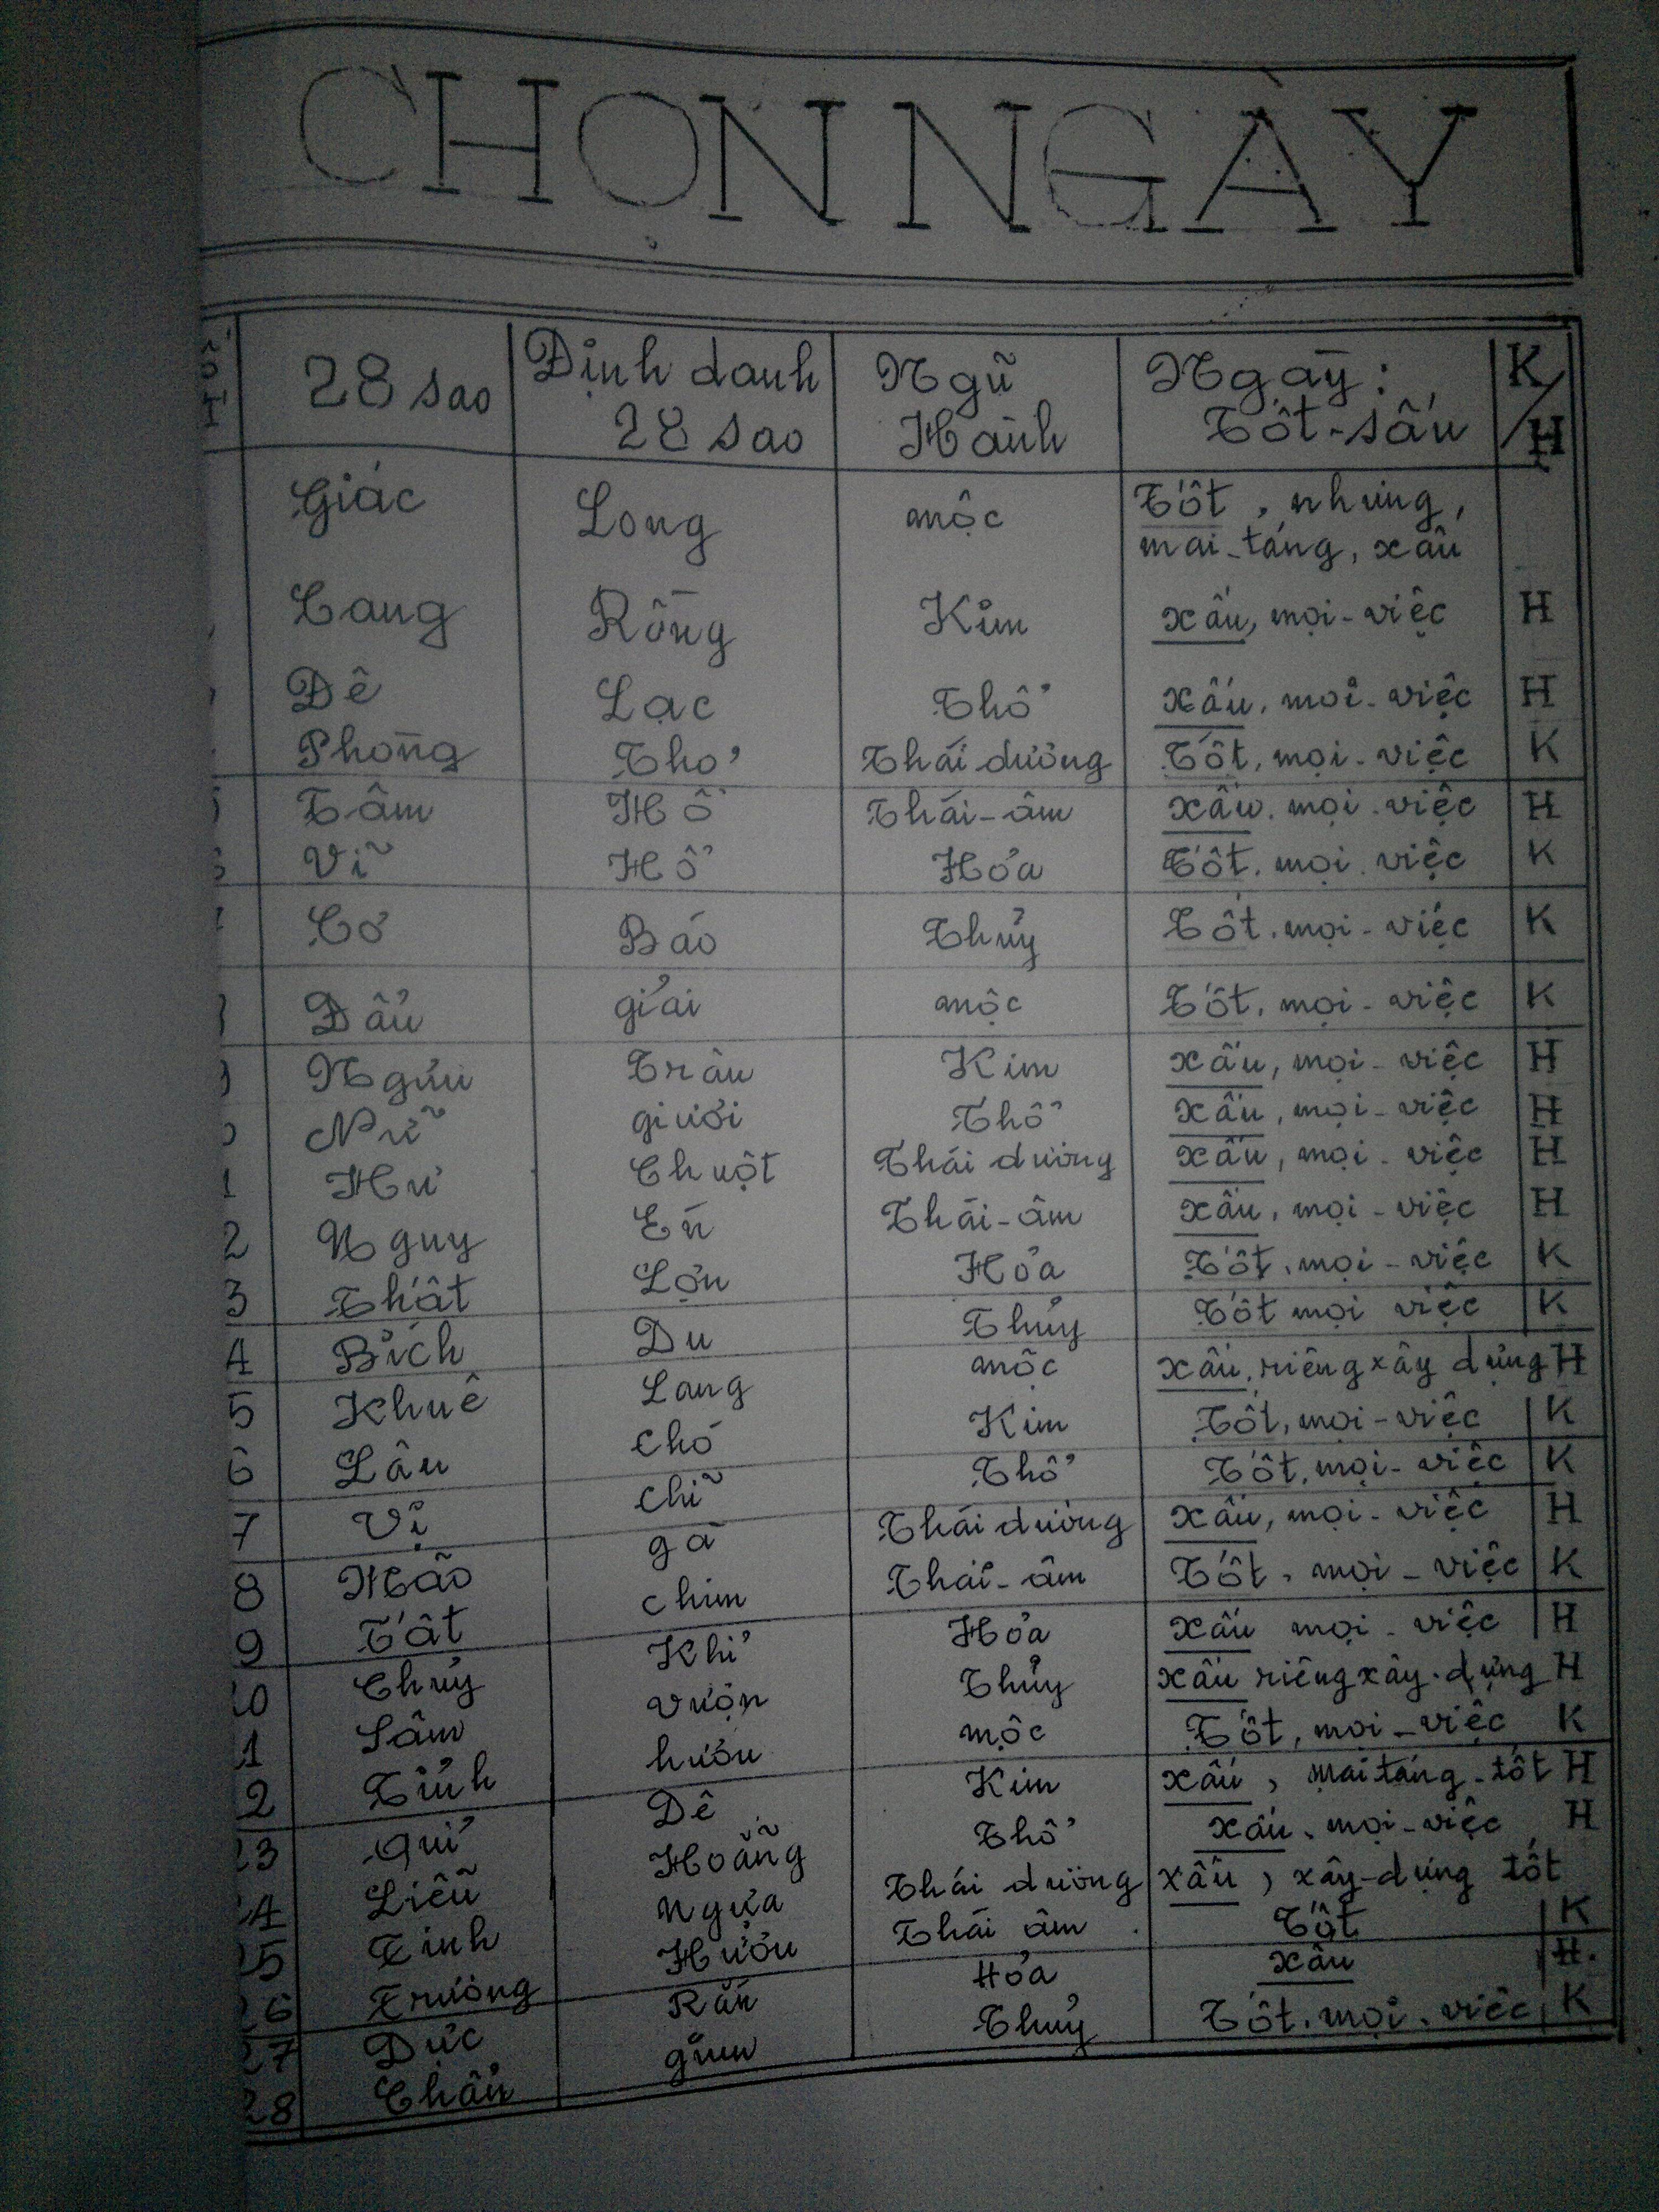 CHỌN NGÀY
28 sao Định danh 28 sao Ngũ Hành Ngày: Tốt - sấu K/H
Giác Long mộc Tốt, nhưng, mai-táng, xấu
Cang Rồng Kim xấu, mọi-việc H
Đê Lạc Thổ xấu, mọi-việc H
Phòng Thỏ Thái dương Tốt, mọi-việc K
Tâm Hồ Thái-âm xấu, mọi-việc H
Vĩ Hổ Hỏa Tốt, mọi việc K
Cơ Báo Thủy Tốt, mọi-việc K
Đẩu giải mộc Tốt, mọi-việc K
Ngưu Trâu Kim xấu, mọi-việc H
Nữ giưới Thổ xấu, mọi-việc H
1 Hư Chuột Thái dương xấu, mọi-việc H
2 Nguy Én Thái-âm xấu, mọi-việc H
3 Thất Lợn Hỏa Tốt, mọi-việc K
4 Bích Du Thủy Tốt mọi việc K
5 Khuê Lang mộc xấu, riêng xây dựng H
6 Lâu chó Kim Tốt, mọi-việc K
7 Vị chĩ Thổ Tốt, mọi-việc K
8 Mão gà Thái dương xấu, mọi-việc H
9 Tất chim Thái-âm Tốt, mọi-việc K
20 Chủy Khỉ Hỏa xấu mọi-việc H
1 Sâm vượn Thủy xấu riêng xây-dựng H
2 Tỉnh hươu mộc Tốt, mọi-việc K
23 Quỉ Dê Kim xấu, mai táng-tốt H
24 Liễu Hoẵng Thổ xấu, mọi-việc H
25 Tinh Ngựa Thái dương xấu, xây-dựng tốt
26 Trương Hươu Thái âm Tốt K
27 Dực Rắn Hỏa xấu H.
28 Chẩn giun Thủy Tốt, mọi việc K